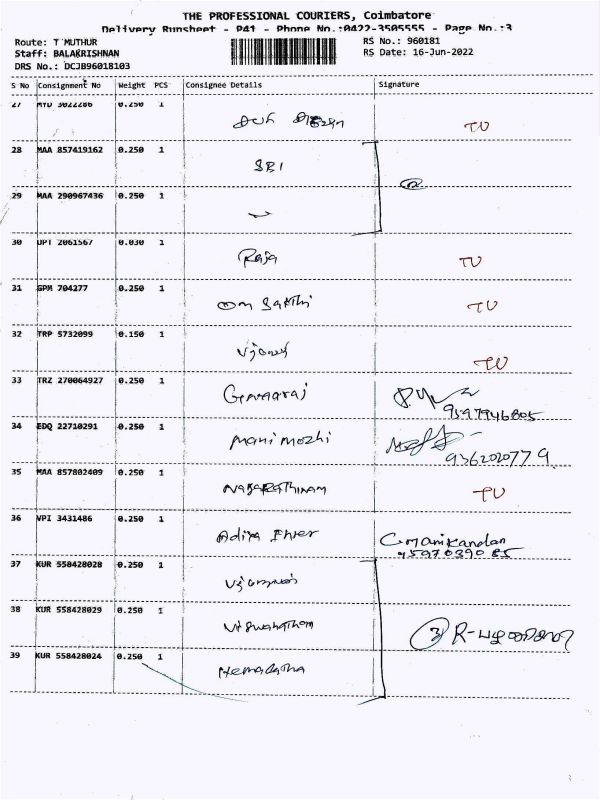 THE PROFESSIONAL COURIERS, Coimbatore
Delivery Runsheet - P41 - Phone No.:0422-3505555 - Page No.:3
Route: T MUTHUR
RS No.: 960181
Staff: BALAKRISHNAN
RS Date: 16-Jun-2022
DRS No.: DCJB96018103
S No Consignment No Weight PCS Consignee Details Signature
27 MYD 3022286 0.250 1 TU
28 MAA 857419162 0.250 1 SBI
29 MAA 290967436 0.250 1
30 UPT 2061567 0.030 1 Raja TU
31 GPM 704277 0.250 1 Om Sakthi TU
32 TRP 5732099 0.150 1 TU
33 TRZ 270064927 0.250 1 9597946805
34 EDQ 22710291 0.250 1 Manimozhi 9362020779
35 MAA 857802409 0.250 1 Nagarathinam TU
36 VPI 3431486 0.250 1 Adiya C. Manikandan
9597039085
37 KUR 558428028 0.250 1
38 KUR 558428029 0.250 1 Viswanatham 3 R-
39 KUR 558428024 0.250 1 Hemalatha